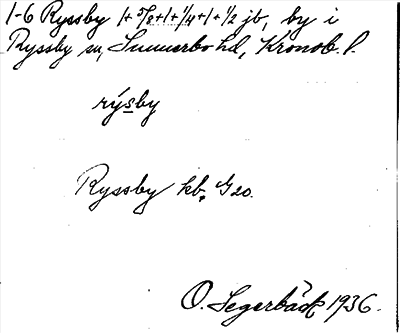 1-6 Ryssby 1+5/8+1+1/4+1+1/2 jb, by i
Ryssby sn, Sunnerbo hd, Kronob. l.
rýsby
Ryssby kb. G20.
O. Segerbäck 1936.